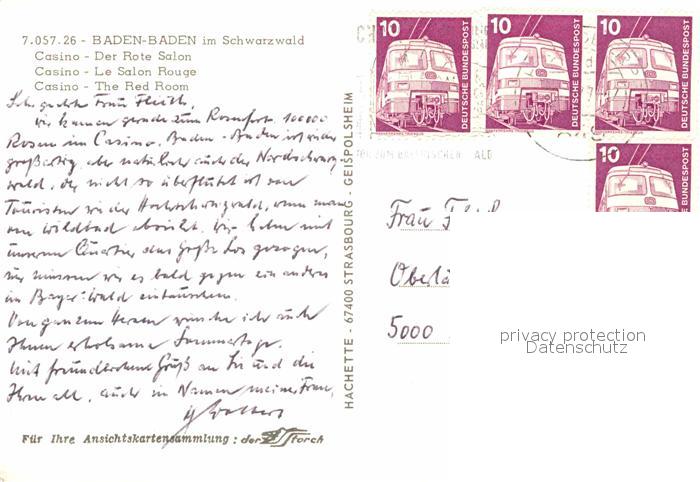 7.057.26 - BADEN-BADEN im Schwarzwald
Casino - Der Rote Salon
Casino - Le Salon Rouge
Casino - The Red Room
Sehr geehrte Frau Fleisch,
wir kamen gerade zum Rosenfest. 100000
Rosen im Casino. Baden-Baden ist wieder
großartig, aber natürlich auch der Nordschwarz-
wald, der nicht so überflutet ist von
Touristen wie der Hochschwarzwald, wenn man
von Wildbad absieht. Wir haben mit
unserem Quartier das Große Los gezogen,
nur müssen wir es bald gegen ein anderes
im Bayer. Wald eintauschen.
Von ganzem Herzen wünsche ich auch
Ihnen erholsame Sommertage.
Mit freundlichem Gruß an Sie und die
Ihren all, auch im Namen meiner Frau,
Für Ihre Ansichtskartensammlung : der Storch
HACHETTE - 67400 STRASBOURG - GEISPOLSHEIM
10 DEUTSCHE BUNDESPOST
10 DEUTSCHE BUNDESPOST
10 DEUTSCHE BUNDESPOST
10
Frau
5000
privacy protection
Datenschutz